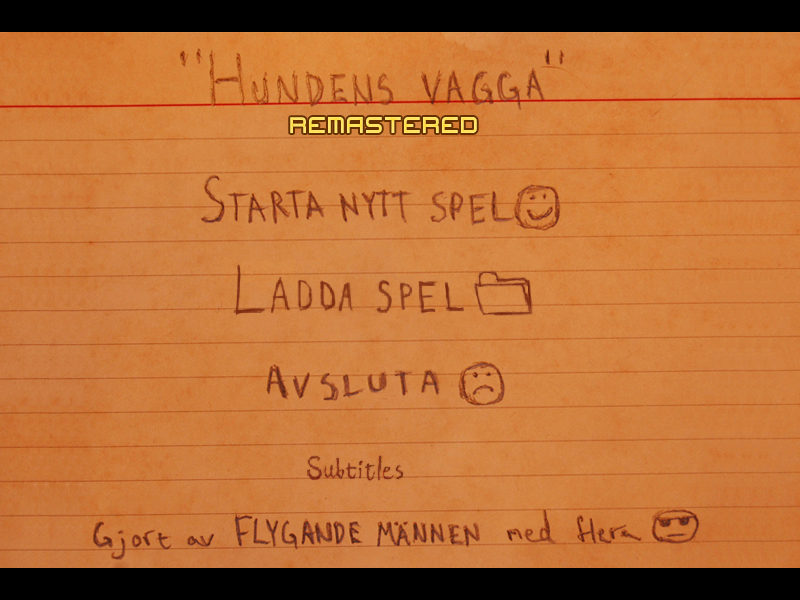 "HUNDENS VAGGA"
REMASTERED
STARTA NYTT SPEL
LADDA SPEL
AVSLUTA
Subtitles
Gjort av FLYGANDE MÄNNEN med flera